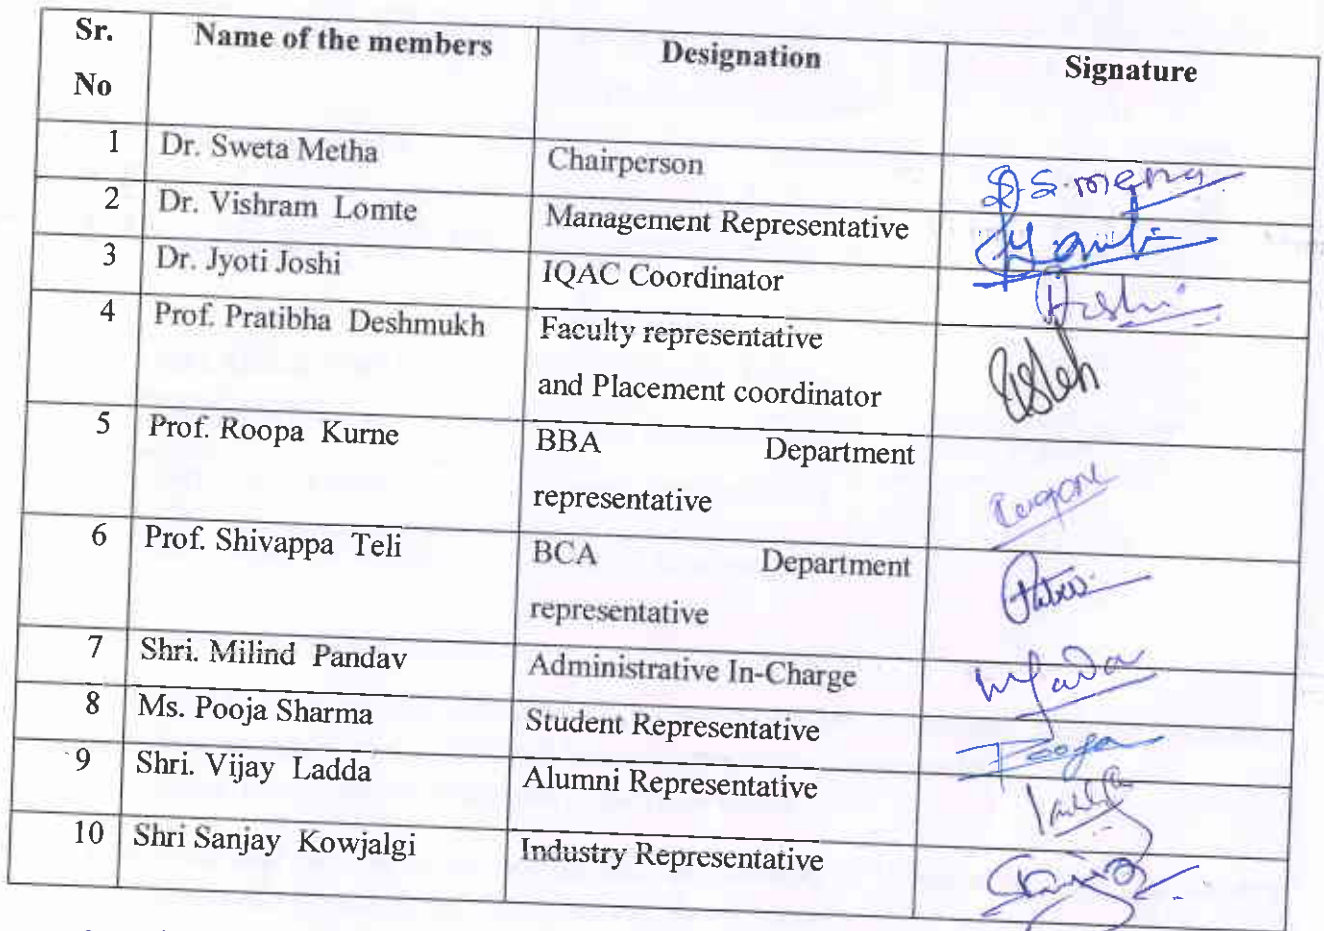 Sr. No Name of the members Designation Signature
1 Dr. Sweta Metha Chairperson
2 Dr. Vishram Lomte Management Representative
3 Dr. Jyoti Joshi IQAC Coordinator
4 Prof. Pratibha Deshmukh Faculty representative
and Placement coordinator
5 Prof. Roopa Kurne BBA Department
representative
6 Prof. Shivappa Teli BCA Department
representative
7 Shri. Milind Pandav Administrative In-Charge
8 Ms. Pooja Sharma Student Representative Pooja
9 Shri. Vijay Ladda Alumni Representative
10 Shri Sanjay Kowjalgi Industry Representative